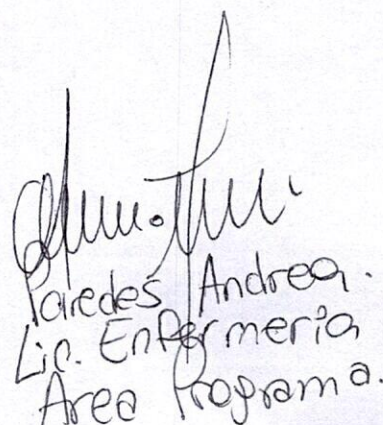 Paredes Andrea.
Lic. Enfermería
Area Programa.